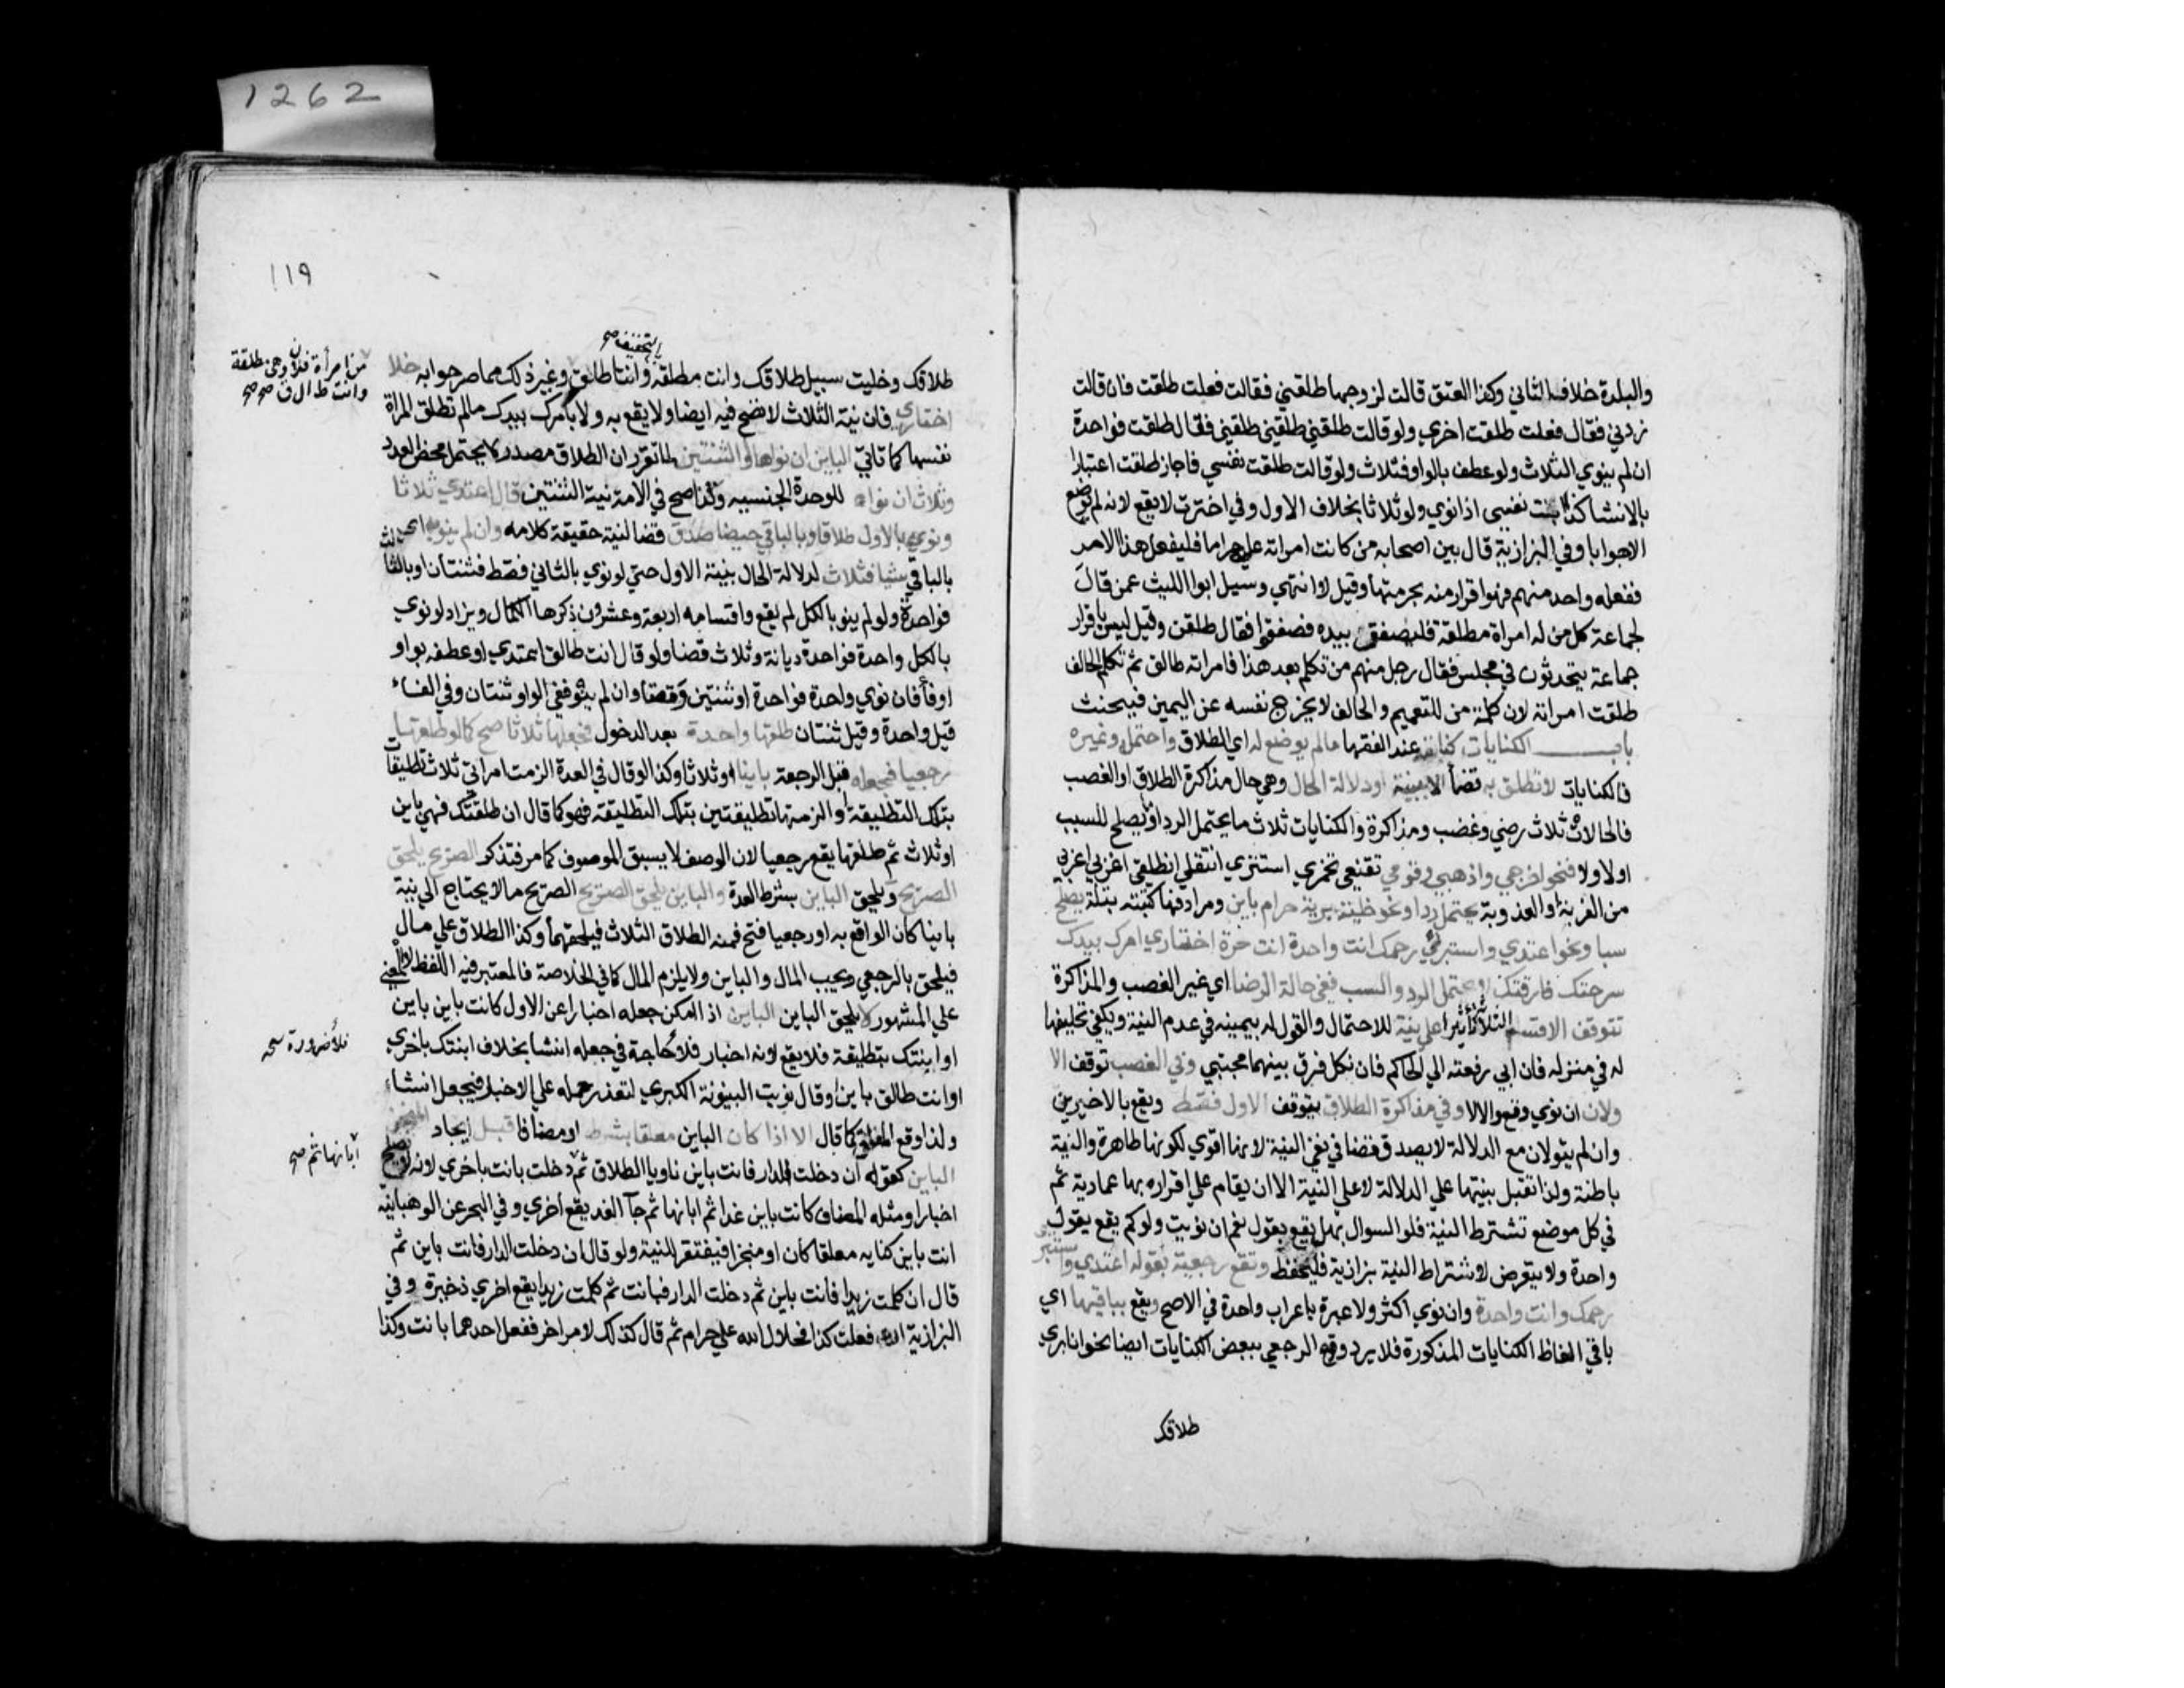 والبلدة خلافا لثاني وكذا العتق قالت لزوجها طلقني فقالت فعلت طلقت فان قالت
زدني فقال فعلت طلقت اخري ولو قالت طلقني طلقني طلقني فقال طلقت فواحدة
ان لم ينوي الثلاث ولو عطف بالواو فثلاث ولو قالت طلقت نفسي فاجاز طلقت اعتبارا
بالانشا كذا ابنت نفسي اذا نوي ولو ثلاثا بخلاف الاول وفي اخترت لا يقع لانه لم يوضع
الاجوابا وفي البزازية قال بين اصحابه من كانت امراته عليه حراما فليفعل هذا الامر
ففعله واحد منهم فهو اقرار منه بحرمتها وقيل لا انتهي وسيل ابوا الليث عمن قال
لجماعة كل من له امراة مطلقة فليصفق بيده فصفقوا فقال طلقن وقيل ليس باقرار
جماعة يتحدثون في مجلس فقال رجل منهم من تكلم بعد هذا فامراته طالق ثم تكلم الحالف
طلقت امراته لان كلمة من للتعميم والحالف لا يخرج نفسه عن اليمين فيحنث
باب الكنايات كنايته عند الفقها مالم يوضع له اي الطلاق واحتمله وغيره
فالكنايات لا تطلق به قضأ الا بنية او دلالة الحال وهي حال مذاكرة الطلاق او الغضب
فالحالات ثلاث رضي وغضب ومذاكرة والكنايات ثلاث ما يحتمل الرد او يصلح للسبب
اولا ولا فنحو اخرجي واذهبي وقومي تقنعي تخمري استتري انتقلي انطلقي اغربي اعزبي
من الغربة او العذوبة يحتمل ردا ونحو خلية برية حرام باين ومرادفها كبتة بتلة يصلح
سبا ونحو اعتدي واستبرئي رحمك انت واحدة انت حرة اختاري امرك بيدك
سرحتك فارقتك لا يحتمل الرد والسب ففي حالة الرضا اي غير الغضب والمذاكرة
تتوقف الاقسام الثلاثة تأثيرا علي نية للاحتمال والقول له بيمينه في عدم النية ويكفي تحليفها
له في منزله فان ابي رفعته الي الحاكم فان نكل فرق بينهما مجتبي وفي الغضب توقف الا
ولان ان نوي وقع والا لا وفي مذاكرة الطلاق يتوقف الاول فقط ويقع بالاخيرين
وان لم ينو لان مع الدلالة لا يصدق قضا في نفي النية لانها اقوي لكونها ظاهرة والنية
باطنة ولذا تقبل بينتها علي الدلالة لا علي النية الا ان يقام علي اقراره بها عمادية ثم
في كل موضع تشترط النية فلو السوال بهل يقع يقول نعم ان نويت ولو كم يقع يقول
واحدة ولا يتعرض لاشتراط النية بزازية فليحفظ وتقع رجعية بقوله اعتدي واستبر
رحمك وانت واحدة وان نوي اكثر ولا عبرة باعراب واحدة في الاصح ويقع بباقيها اي
باقي الفاظ الكنايات المذكورة فلا يرد وقوع الرجعي ببعض الكنايات ايضا نحو انا بري
طلاقك
119
1262
بالتخفيف صح
من امرأة فلان وهي مطلقة
وانت ط ال ق صح صح
طلاقك وخليت سبيل طلاقك وانت مطلقة وانت اطلق وغير ذلك مما صرحوا به خلا
اختاري فان نية الثلاث لا تصح فيه ايضا ولا يقع به ولا بامرك بيدك مالم تطلق المراة
نفسها كما تاتي الباين ان نواها او الثنتين لما تقرر ان الطلاق مصدر لا يحتمل محض العدد
وثلاث ان نواه للوحدة الجنسيه وكذا صح في الامة نية الثنتين قال اعتدي ثلاثا
ونوي بالاول طلاقا وبالباقي حيضا صدق قضا لنية حقيقة كلامه وان لم ينو به اي
بالباقي شيا فثلاث لدلالة الحال بنية الاول حتي لو نوي بالثاني فقط فثنتان او بالثالث
فواحدة ولو لم ينو بالكل لم يقع واقسامه اربعة وعشرون ذكرها الكمال ويزاد لو نوي
بالكل واحدة فواحدة ديانة وثلاث قضا ولو قال انت طالق اعتدي او عطفه بواو
او فأ فان نوي واحدة فواحدة او ثنتين وقعتا وان لم ينو ففي الواو ثنتان وفي الفاء
قيل واحدة وقيل ثنتان طلقها واحدة بعد الدخول فجعلها ثلاثا صح كما لو طلقها
رجعيا فجعله قبل الرجعة باينا او ثلاثا وكذا لو قال في العدة الزمت امراتي ثلاث تطليقات
بتلك التطليقة او الزمتها تطليقتين بتلك التطليقة فهو كما قال ان طلقتك فهي باين
او ثلاث ثم طلقها يقع رجعيا لان الوصف لا يسبق الموصوف كما مر فتذكر الصريح يلحق
الصريح ويلحق الباين بشرط العدة والباين يلحق الصريح الصريح ما لا يحتاج الي نية
باينا كان الواقع به او رجعيا فتح فمنه الطلاق الثلاث فيلحقهما وكذا الطلاق علي مال
فيلحق بالرجعي ويجب المال والباين ولا يلزم المال كما في الخلاصة فالمعتبر فيه اللفظ لا المعني
علي المشهور لا يلحق الباين الباين اذا امكن جعله اخبارا عن الاول كانت باين باين
او ابنتك بتطليقة فلا يقع لانه اخبار فلا حاجة في جعله انشا بخلاف ابنتك باخري
فلا ضرورة صح
او انت طالق باين او قال نويت البينونة الكبري لتعذر حمله علي الاخبار فيجعل انشاء
ولذا وقع المعلق كما قال الا اذا كان الباين معلقا بشرط او مضافا قبل ايجاد المنجز
الباين كقوله ان دخلت الدار فانت باين ناويا الطلاق ثم دخلت بانت باخري لانه لا يصلح
ابانها ثم صح
اخبارا ومثله المضاف كانت باين غدا ثم ابانها ثم جآ الغد يقع اخري وفي البحر عن الوهبانية
انت باين كنايه معلقا كان او منجزا فيفتقر للنية ولو قال ان دخلت الدار فانت باين ثم
قال ان كلمت زيدا فانت باين ثم دخلت الدار فبانت ثم كلمت زيدا يقع اخري ذخيرة وفي
البزازية ان فعلت كذا فحلال الله علي حرام ثم قال كذلك لامر اخر ففعل احدهما بانت وكذا